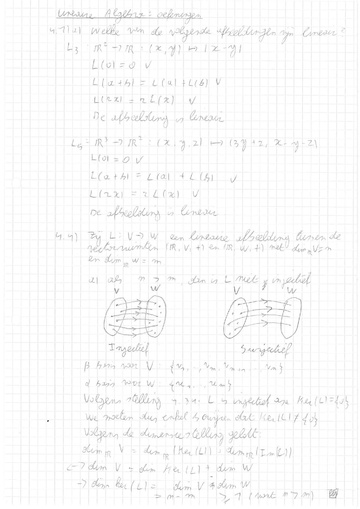 Lineaire Algebra: oefeningen
4.7) a) Welke van de volgende afbeeldingen zijn lineair?
L3 : ℝ² → ℝ : (x, y) ↦ (x - y)
L(0) = 0 V
L(a+b) = L(a) + L(b) V
L(rx) = r L(x) V
De afbeelding is lineair
ℝ³ → ℝ² : (x, y, z) ↦ (3y + z, x - y - z)
L(0) = 0 V
L(a+b) = L(a) + L(b) V
L(rx) = r L(x) V
De afbeelding is lineair
Zij L : V → W een lineaire afbeelding tussen de
vectorruimten (ℝ, V, +) en (ℝ, W, +) met dim V = n
en dim W = m
als n > m, dan is L niet injectief
V W V W
Injectief Surjectief
β basis voor V :
basis voor W :
Volgens stelling is L injectief Ker(L) = {0}
We moeten dus enkel bewijzen dat Ker(L) ≠ {0}
Volgens de dimensiestelling geldt
dim V = dim (Ker(L)) + dim (Im(L))
dim V = dim Ker(L) + dim W
→ dim Ker(L) = dim V - dim W
= n - m ≥ 1 (want n > m)